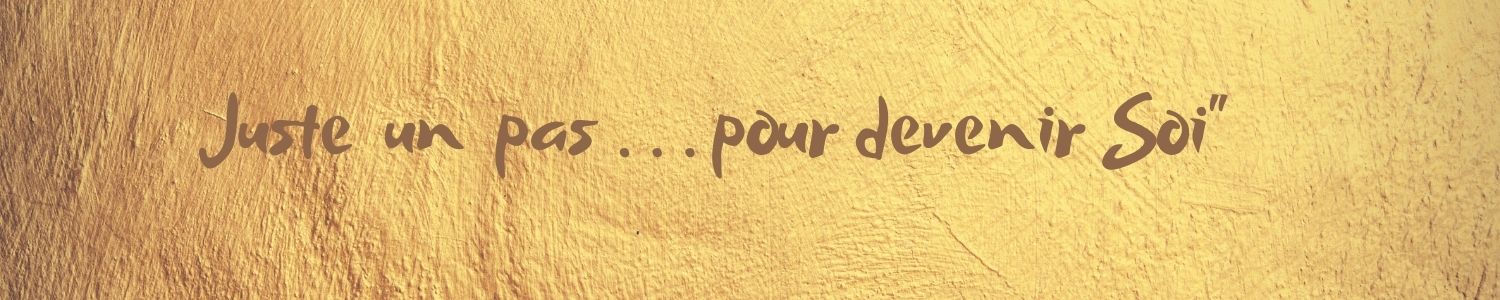 Juste un pas ... pour devenir Soi"